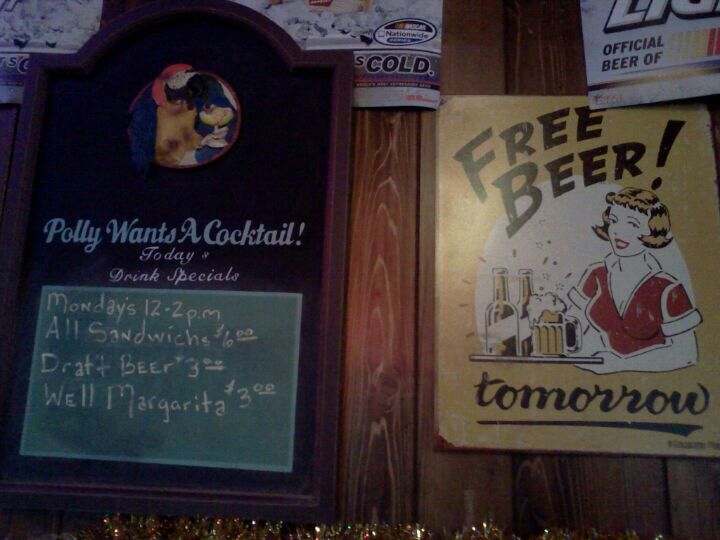 NASCAR
Nationwide
SERIES
COLD.
OFFICIAL
BEER OF
Polly Wants A Cocktail!
Today's
Drink Specials
Monday's 12-2p.m
All Sandwichs $6.00
Draft Beer $3.00
Well Margarita $3.00
FREE
BEER!
tomorrow